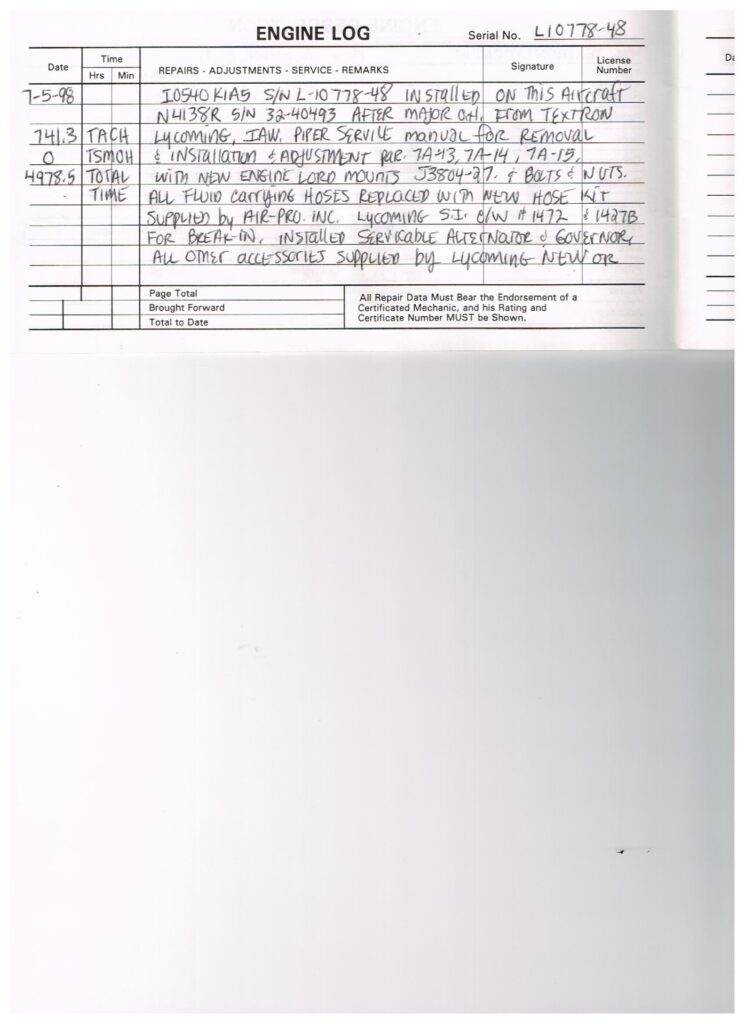 ENGINE LOG Serial No. L10778-48
Date Time REPAIRS - ADJUSTMENTS - SERVICE - REMARKS Signature License Number
Hrs Min
7-5-98 IO540K1A5 S/N L-10778-48 INSTALLED ON THIS AIRCRAFT
N4138R S/N 32-40493 AFTER MAJOR O.H. FROM TEXTRON
741.3 TACH LYCOMING, IAW. PIPER SERVICE MANUAL FOR REMOVAL
0 TSMOH & INSTALLATION & ADJUSTMENT PAR. 7A-13, 7A-14, 7A-15.
4978.5 TOTAL WITH NEW ENGINE LORD MOUNTS J3804-27. & BOLTS & NUTS.
TIME ALL FLUID CARRYING HOSES REPLACED WITH NEW HOSE KIT
SUPPLIED by AIR-PRO. INC. LYCOMING S.I. C/W # 1472 & 1427B
FOR BREAK-IN, INSTALLED SERVICABLE ALTERNATOR & GOVERNOR,
ALL OTHER ACCESSORIES SUPPLIED by LYCOMING NEW OR
Page Total
Brought Forward
Total to Date
All Repair Data Must Bear the Endorsement of a
Certificated Mechanic, and his Rating and
Certificate Number MUST be Shown.